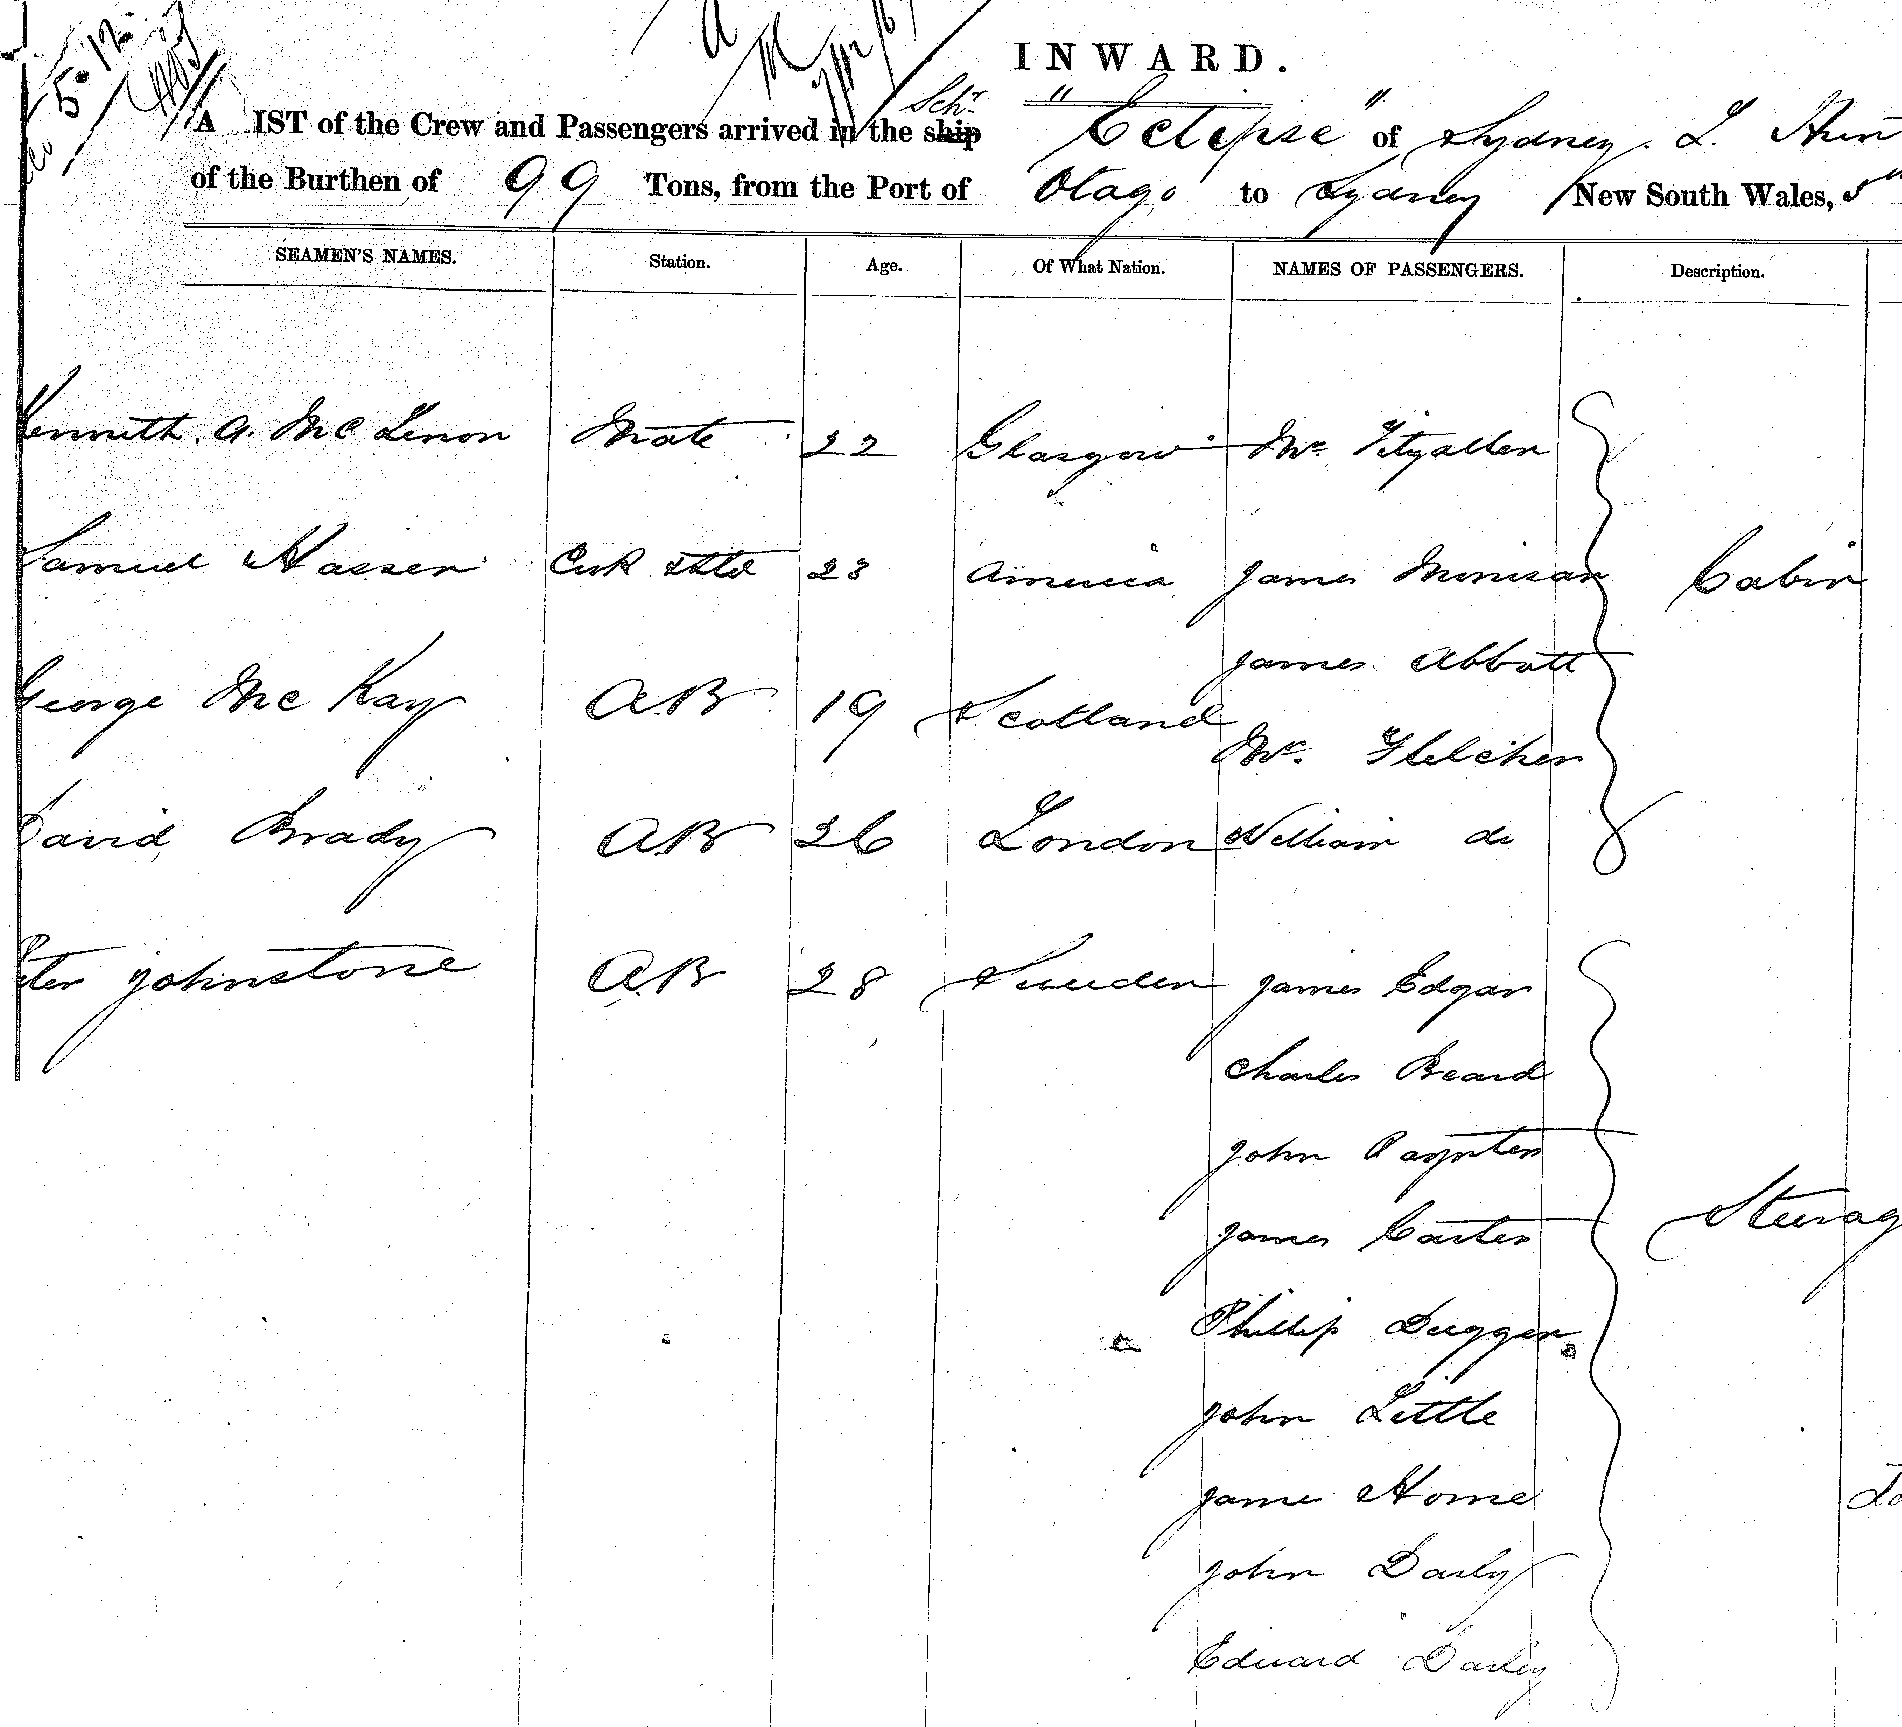 INWARD.
A IST of the Crew and Passengers arrived in the ship Schr "Eclipse" of Sydney. L.
of the Burthen of 99 Tons, from the Port of Otago to Sydney New South Wales, 5th
SEAMEN'S NAMES. Station. Age. Of What Nation. NAMES OF PASSENGERS. Description.
Kenneth. A. Mc Lenon Mate 22 Glasgow Mr Fitzallen
Samuel Cook & Std 23 America James Morrison Cabin
James Abbott
George Mc Kay AB 19 Scotland
Mr. Fletcher
David Brady AB 26 London William do
Peter Johnstone AB 28 Sweeden James Edgar
Charles Beard
John Paynter
James Carter Steerag
Phillip Duggen
John Little
James Horne
John Darly
Edward Darley